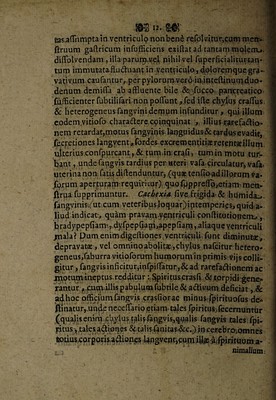 12.
tas assumpta in ventriculo non bene resolvitur, cum men-
struum gastricum insufficiens existat ad tantam molem
dissolvendam, illa parum vel nihil vel superficialiter tan-
tum immutata fluctuans in ventriculo, dolorem que gra-
vativum causantur, per pylorum verò in intestinum duo-
denum demissa ab affluente bile & succo pancreatico
sufficienter subtilisari non possunt, sed iste chylus crassus
& heterogeneus sangvini demum infunditur, qui illum
eodem vitioso charactere coinquinat, illius rarefactio-
nem retardat, motus sangvinis languidus & tardus evadit,
secretiones langvent, sordes excrementitiæ retentæ illum
ulterius conspurcant, & tum in crasi, tum in motu tur-
bant, unde sangvis tardius per uteri vasa circulatur, vasa
uterina non satis distenduntur, (quæ tensio ad illorum va-
sorum aperturam requiritur) quo suppresso, etiam men-
strua supprimuntur. Cachexia sive frigida & humida
sangvinis (ut cum veteribus loquar) intemperies, quid a-
liud indicat, quàm pravam ventriculi constitutionem,
bradypepsiam, dyspepsiam, apepsiam, aliaque ventriculi
mala? Dum enim digestiones ventriculi sunt diminutæ,
depravatæ, vel omnino abolitæ, chylus nascitur hetero-
geneus, saburra vitiosorum humorum in primis vijs colli-
gitur, sangvis inficitur, inspissatur, & ad rarefactionem ac
motum ineptus redditur: Spiritus crassi & torpidi gene-
rantur, cum illis pabulum subtile & activum deficiat, &
ad hoc officium sangvis crassior ac minus spirituosus de-
stinatur, unde necessario etiam tales spiritus secernuntur
(qualis enim chylus talis sangvis, qualis sangvis tales spi-
ritus, tales actiones & talis sanitas &c.) in cerebro, omnes
totius corporis actiones langvent, cum illæ à spirituum a-
nimalium